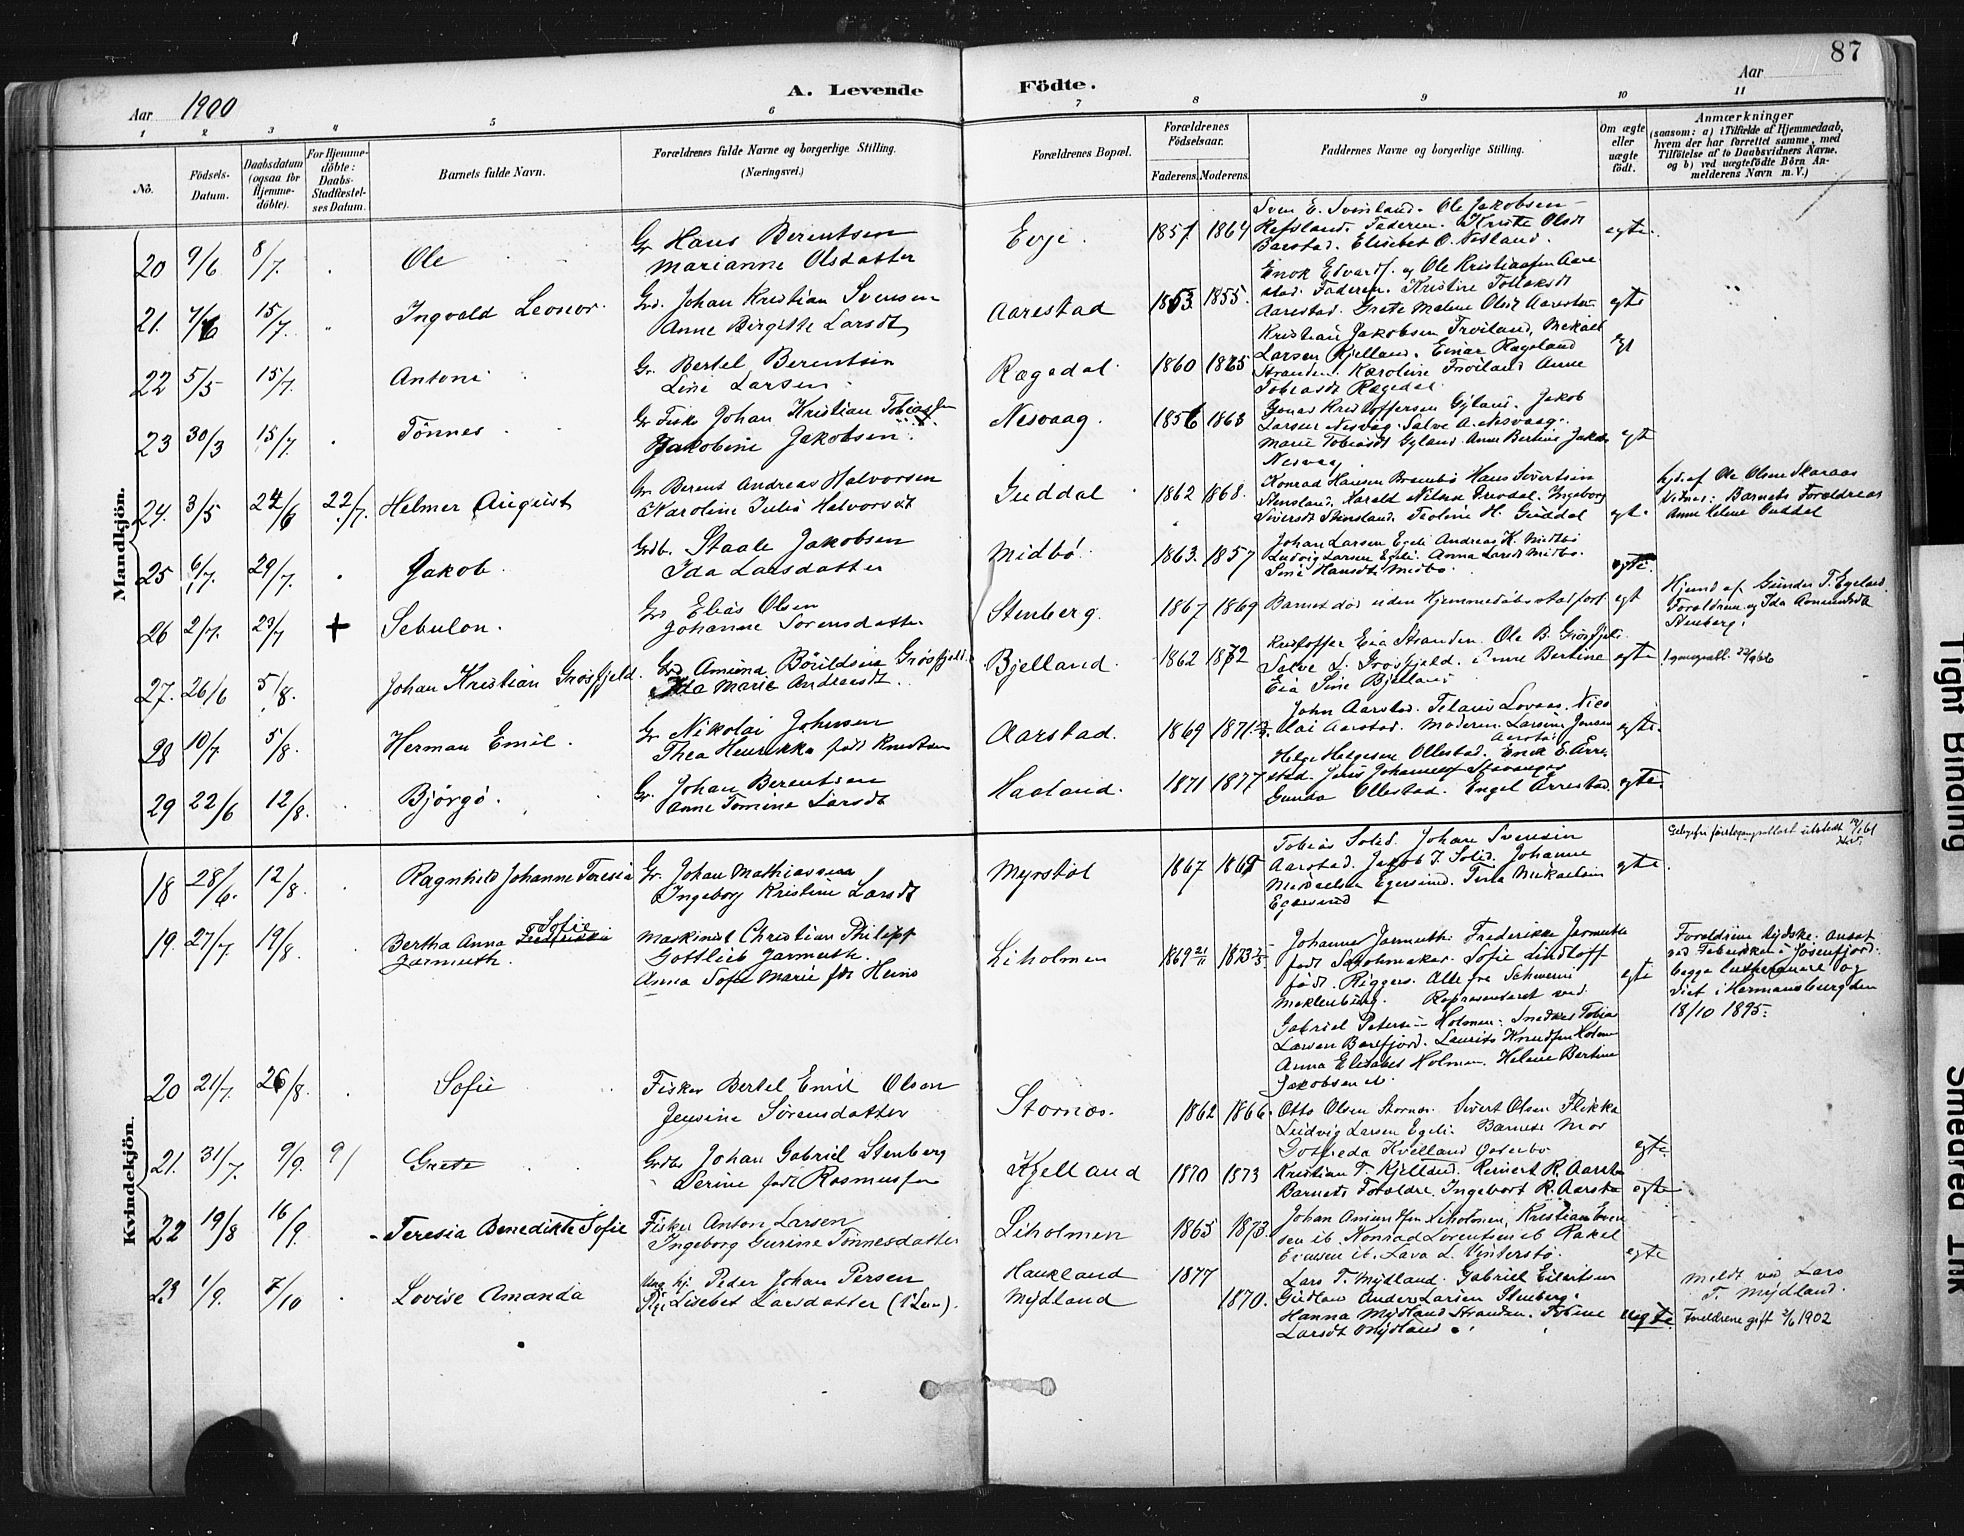 87
Aar 1900
A. Levende Födte.
Aar
1 2 3 4 5 6 7 8 9 10 11
No.
Födsels-Datum.
Daabsdatum (ogsaa for Hjemmedöbte).
For Hjemmedöbte: Daabs-Stadfæstelses Datum.
Barnets fulde Navn.
Forældrenes fulde Navne og borgerlige Stilling. (Næringsvei.)
Forældrenes Bopæl.
Forældrenes Födselsaar.
Faderens. Moderens.
Faddernes Navne og borgerlige Stilling.
Om ægte eller uægte födt.
Anmærkninger
(saasom: a) i Tilfælde af Hjemmedaab, hvem der har forrettet samme, med Tilföielse af to Daabsvidners Navne, og b) ved uægtefödte Börn Anmelderens Navn m. V.)
Mandkjön.
20 9/6 8/7. Ole
Gr Hans Berentsen
Marianne Olsdatter
Evje. 1857 1864
Sven E. Svinland. Ole Jakobsen
Refsland. Faderen. Olsdt
Barstad. Elisebet O. Nesland.
egte.
21. 15/7. Ingvald Leonor.
Johan Kristian Svensen
Anne Birgitte Larsdt
Aarestad 1853. 1855.
Enok Edvards. og Ole Kristiansen Aare
stad. Faderen. Kristine
Aarestad. Grete Malene Olsd Aaresta
egte
22 5/5 15/7. Antoni
Gr. Bertel Berentsen
Line Larsen
Rægedal. 1860 1865
Kristian Jakobsen Fröiland, Mekael
Larsen Kjelland. Einar Rægeland
Stranden. Karoline Fröiland Anne
Tobiasdt Rægedal
egt
23 30/3 15/7. Tönnes
Gr Fisk Johan Kristian Tobiassen
Jakobine Jakobsen.
Nesvaag. 1856 1863
Jonas Kristoffersen Gyland. Jakob
Larsen Nesvag. Salve A. Nesvaag.
Marie Tobiasdt Gyland. Anne Bertine Jakob
Nesvaag
egte
24. 3/5 24/6 22/7. Helmer August
Gr. Berent Andreas Halvorsen
Karoline Julie Halvorsdt
Guddal 1862 1868.
Konrad Hansen Hans Sivertsen
Stensland. Harald Nilsen Ingeborg
Siversdt Stensland. Teoline H. Guddal
egt.
hjd. af Ole Olsen Skaraas
Vidner: Barnets Foreldre og
Anne Helene Guddal
25 6/7. 29/7. Jakob.
Grdb. Staale Jakobsen
Ida Larsdatter
Midbö 1863. 1857
Johan Larsen Egeli Andreas K. Midbö
Ludvig Larsen Egeli. Anna Larsdt Midbö.
Sine Hansdt Midbö.
egte.
26 2/7. 29/7 + Sebulon.
Gr Elias Olsen
Johanne Sörensdatter
Stenberg. 1867 1869
Barnet död uden Hjemmedåbsstadfest
egt
Hjemd af Gunder T. Egeland
Foreldrene og Ida Amundsdt
Stenberg.
27. 26/6 5/8. Johan Kristian Grösfjeld.
Amund Böruldsen Grösfjeld.
Ida Marie Andreasdt.
Bjelland. 1862 1872
Kristoffer Eia Stranden. Ole B. Grösfjeld
Salve L. Grösfjeld. Anne Bertine
Eia Sine Bjelland
egte
28 10/7. 5/8. Herman Emil.
Gr Nikolai Johnsen
Thea Henrikka födt Knutsen
Aarstad. 1869 1871
John Aarstad. Lovaas. Nico
lai Aarstad. Moderen. Larsine Jensen
Aarstad
egte.
29 22/6 12/8. Björgö.
Gr. Johan Berentsen
Anne Tomine Larsdt
Haaland. 1871 1877
Helge Helgesen Ollestad. Enok E. Arre
stad. Stavanger
Gunda Ollestad. Engel Årrestad.
egte.
Kvindekjön.
18 28/6. 12/8. Ragnhild Johanne Teresia
Gr. Johan Mathiassen
Ingeborg Kristine Larsdt
Myrstöl 1867
Tobias Solid. Johan Svensen
Aarstad. Jakob T. Solid. Johanne
Mekaelsen Egersund. Mekaelsen
Egersund
egte.
19. 27/7 19/8. Bertha Anna Sofie
Jarmuth.
Maskinist Christian Philipp
Gottlieb Jarmuth.
Anna Sofie Marie fdt Heins
Liholmen 1869 21/11 1873
Johanne Jarmuth. Frederikke Jarmuth
födt Sofie Lindloff
födt Riggers. Alle fra Schwerin
Meklenburg. Representeret ved
Gabriel Petersen Holmen. Snedker Tobias
Larsen Borefjord. Laurits Knudsen Holmen
Anna Elisabet Holmen. Helene Bertine
Jakobsen
egte
Foreldrene tydske. ansat
ved Fabrikken i Jösenfjord.
begge lutheranere og
viet i Hermansburg den
18/10 1895.
20 21/7. 26/8. Sofie
Fisker Bertel Emil Olsen
Jensine Sörensdatter
Stornæs. 1862 1866.
Otto Olsen Stornæs. Sivert Olsen Flikka
Ludvig Larsen Egeli. Barnets Mor
Kvelland
egte.
21. 31/7. 9/9. 9/ Grete
Grdbr Johan Gabriel Stenberg
Serine födt Rasmussen
Kjelland 1870 1873
Kristian T. Kjelland. Reinert R. Aarsta
Barnets Foreldre. Ingebort R. Aarsta
egte
22 19/8 16/9. Teresia Benedikte Sofie
Fisker Anton Larsen
Ingeborg Gurine Tönnesdatter
Liholmen 1865 1873.
Johan Amundsen Liholmen, Kristian Even
sen ib. Konrad Lorentsen ib Rakel
ib. Lava L. Vinterstö.
egte
23 1/9. 7/10 Lovise Amanda
Ung kj. Peder Johan Persen
Pige Lisebet Larsdatter (1ste Leier).
Haukland 1877
Mydland 1870.
Lars T. Mydland. Gabriel Eilertsen
Anders Larsen Stenberg.
Hanna Mydland Stranden.
Larsdt Mydland
uegte
Meldt ved Lars
T. Mydland.
Foreldrene gift 2/6 1902
Tight Binding
Smeared Ink